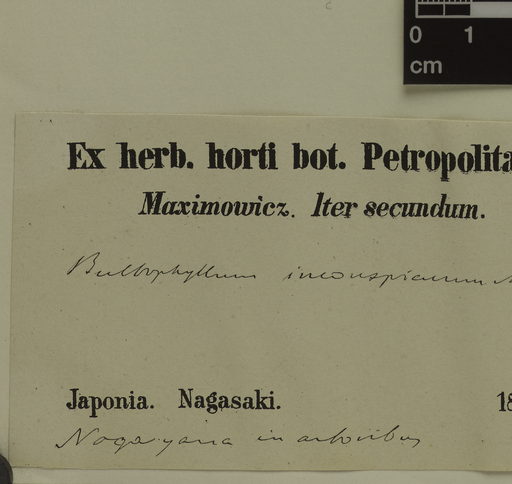 0 1
cm
Ex herb. horti bot. Petropolita
Maximowicz. Iter secundum.
Bulbophyllum inconspicuum M
Japonia. Nagasaki. 18
Nogayana in arboribus